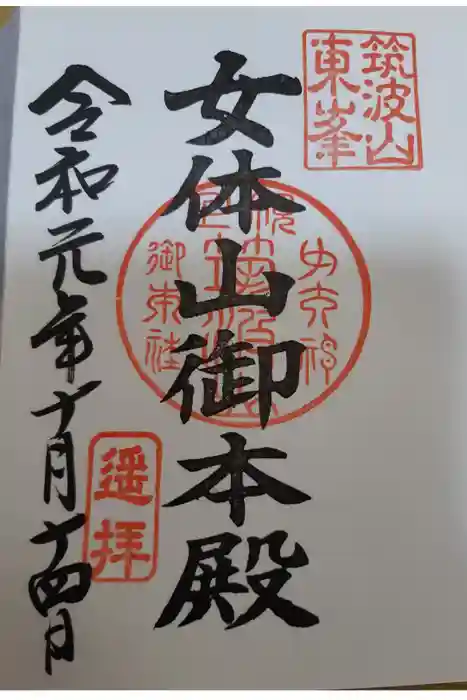 筑波山
東峯
女体山御本殿
遥拝
令和元年十月十四日